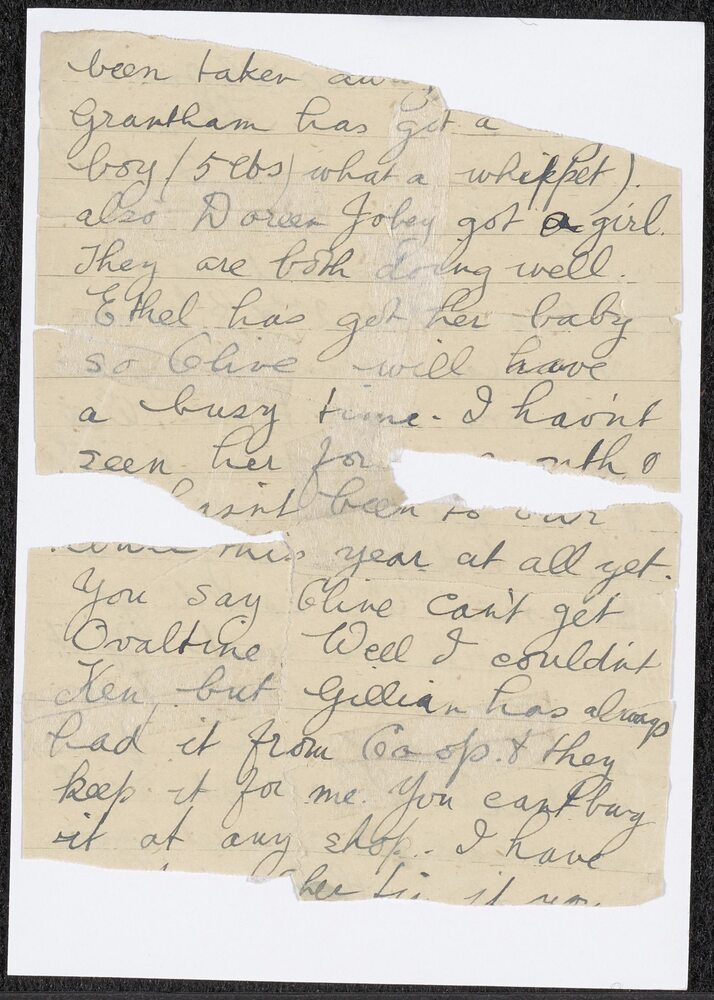 been taken
Grantham has got a
boy (5 lbs) what a whippet).
also Doreen Jobey got a girl.
They are both doing well.
Ethel has got her baby
so Olive will have
a busy time - I hav'nt
seen her for
hasnt been to our
this year at all yet.
You say Olive can't get
Ovaltine Well I couldn't
Ken, but Gillian has always
had it from Co op. & they
keep it for me. You cant buy
it at any shop. - I have
her it